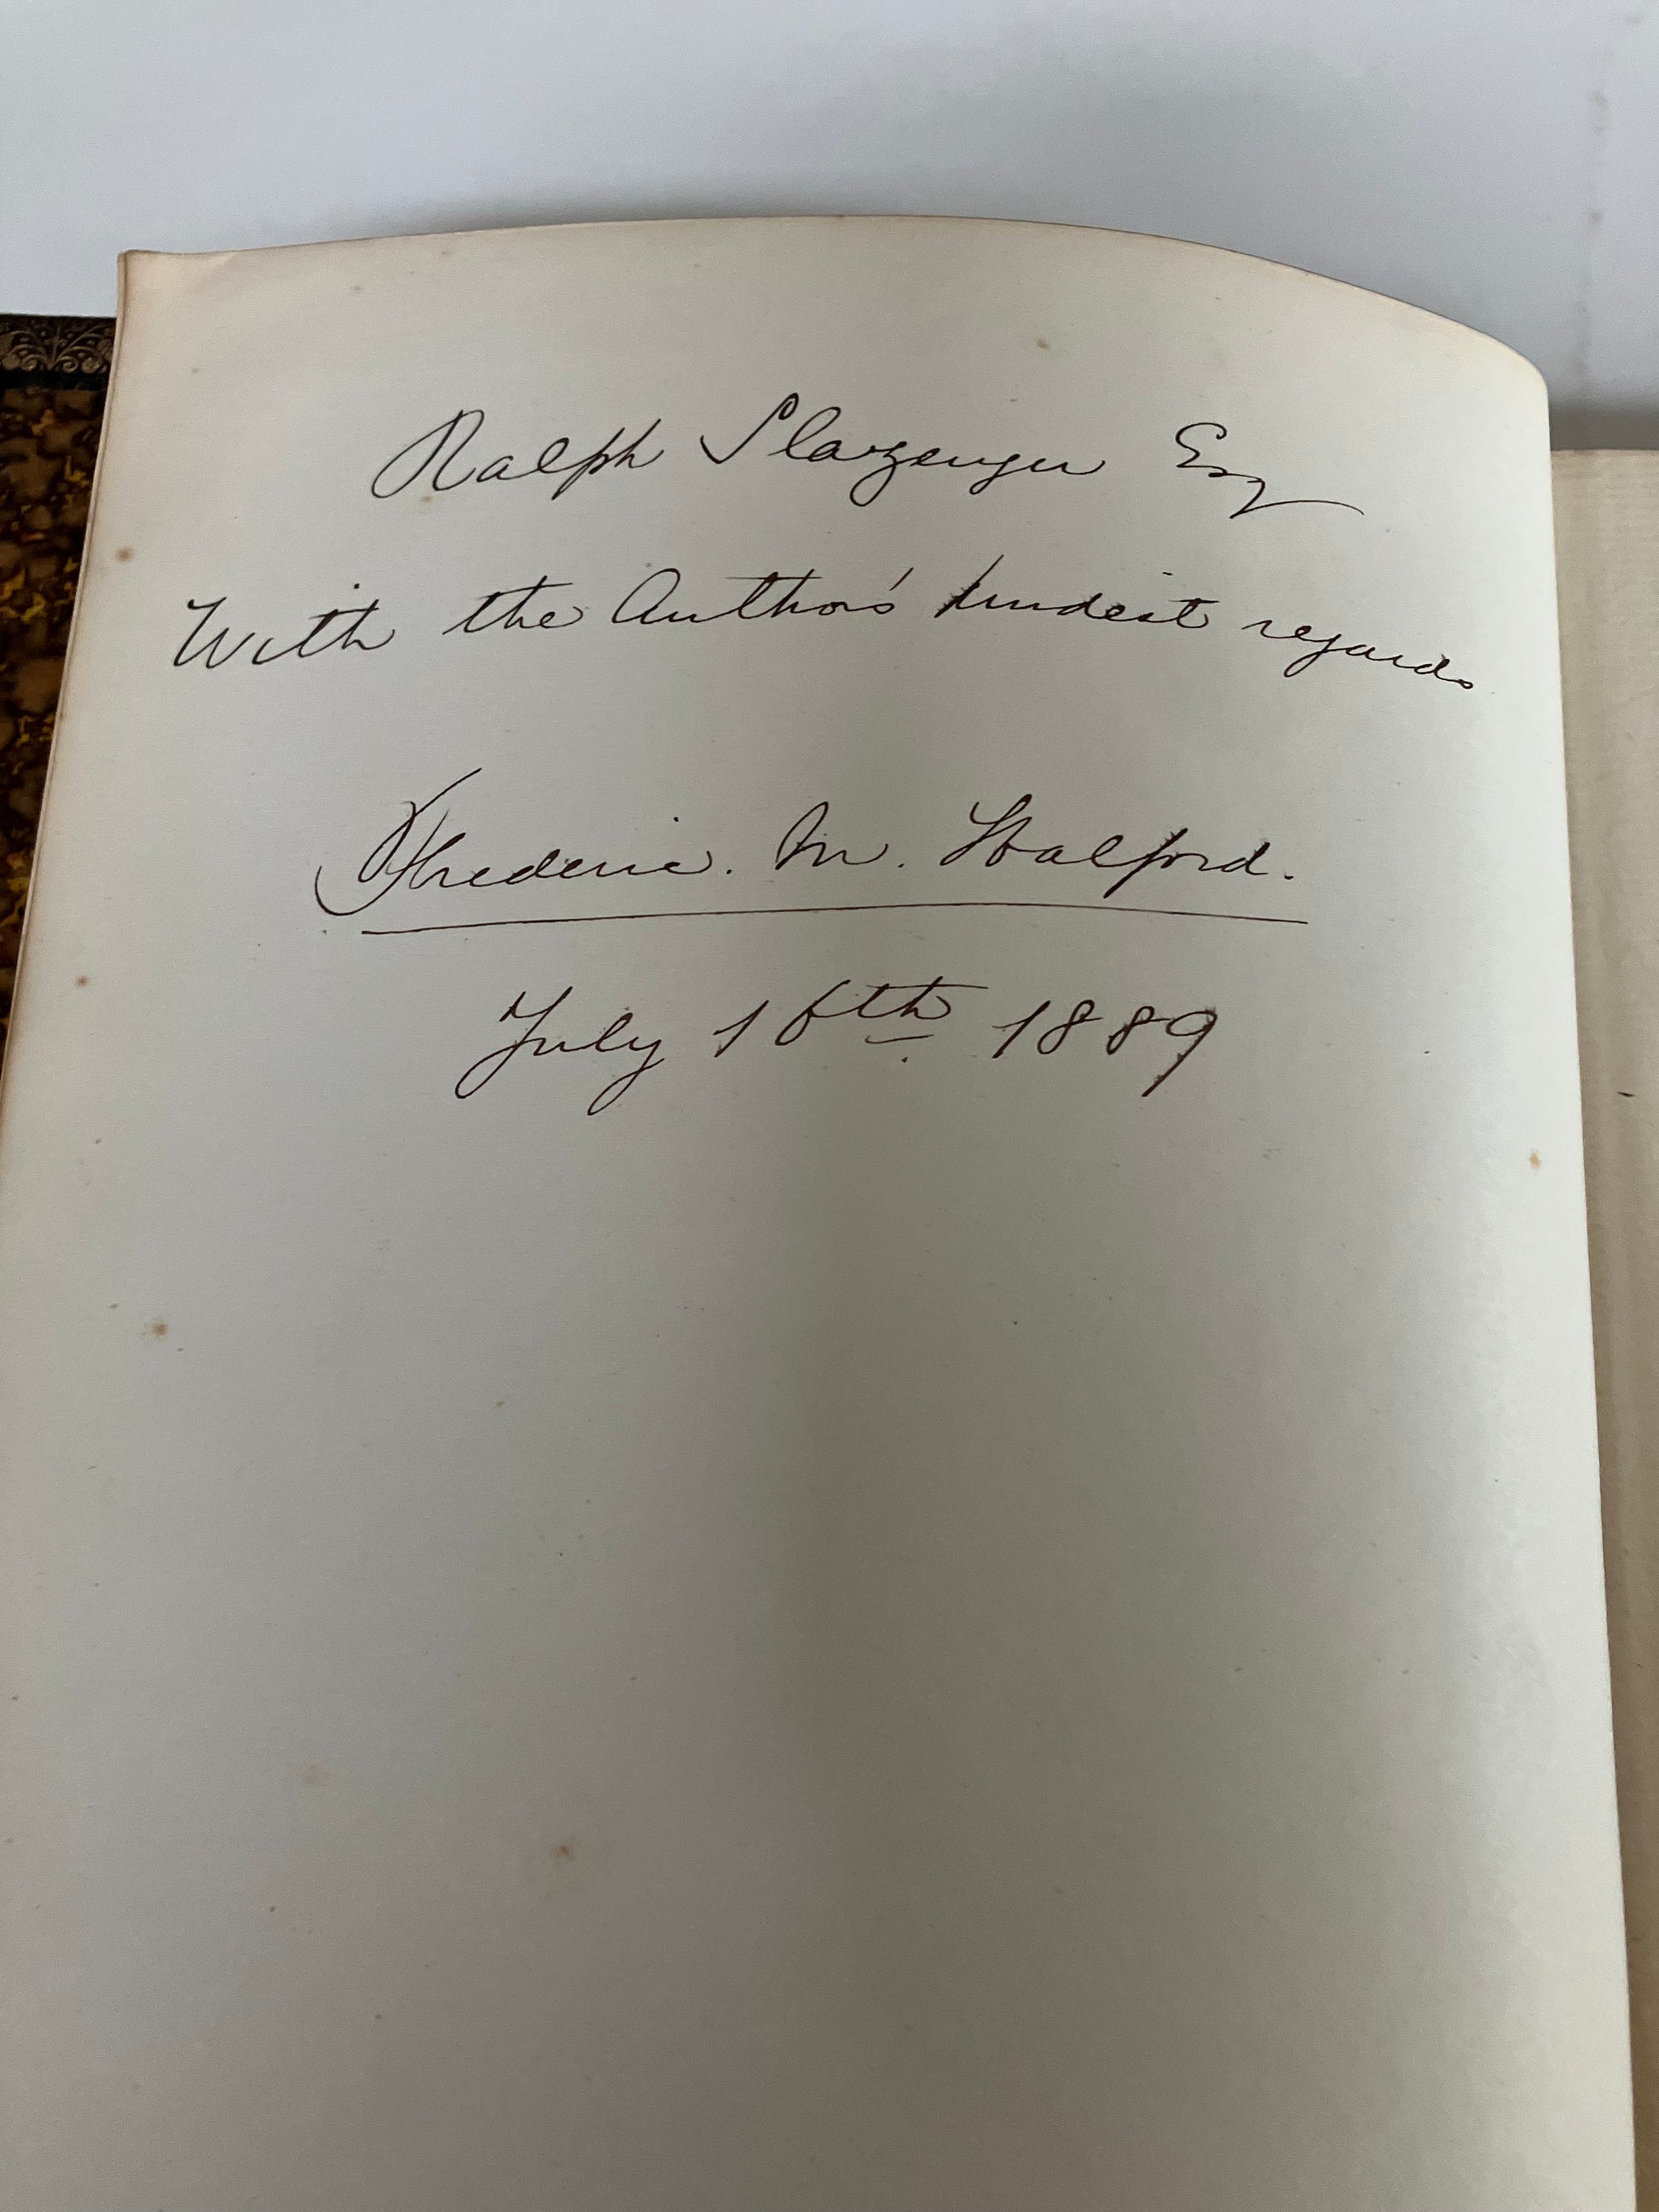 Ralph Slazenger Esq
With the Author's kindest regards
Frederic. M. Halford.
July 16th 1889